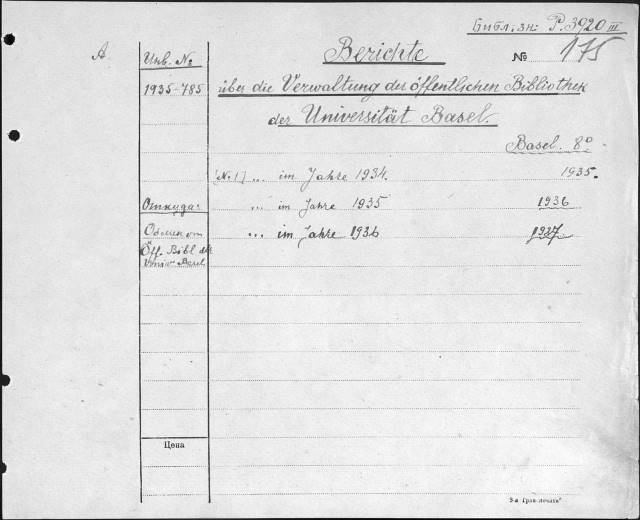 Библ. зн: P.3920 III
A
Инв. №
Berichte
№ 175
1935-785
über die Verwaltung der öffentlichen Bibliothek
der Universität Basel.
Basel. 8°
(N. 1) ... im Jahre 1934. 1935.
Откуда:
... im Jahre 1935 1936
Обмен от
... im Jahre 1936 1937
Öff. Bibl. der
Univ. Basel
Цена